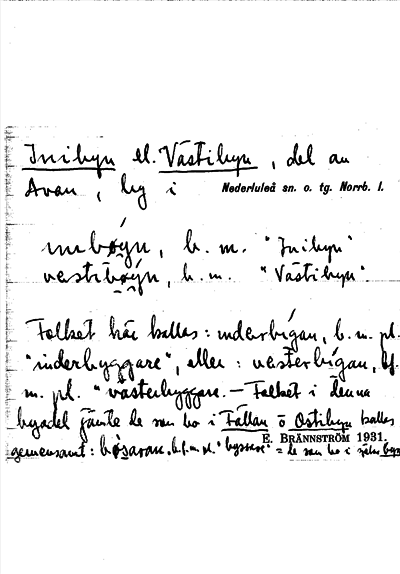 Inibyn el. Västibyn, del av
Avan, by i Nederluleå sn. o. tg. Norrb. l.
inibǿyn, b. m. "Inibyn"
vestibǿyn, b. m. "Västibyn".
Folket här kallas: inderbígan, b. m. pl.
"inderbyggare", eller: vesterbígan, bf.
m. pl. "västerbyggare. – Folket i denna
byadel jämte de som bo i Fällan o Östibyn kallas
E. BRÄNNSTRÖM 1931.
gemensamt: bf. m. pl. = de som bo i själva byn